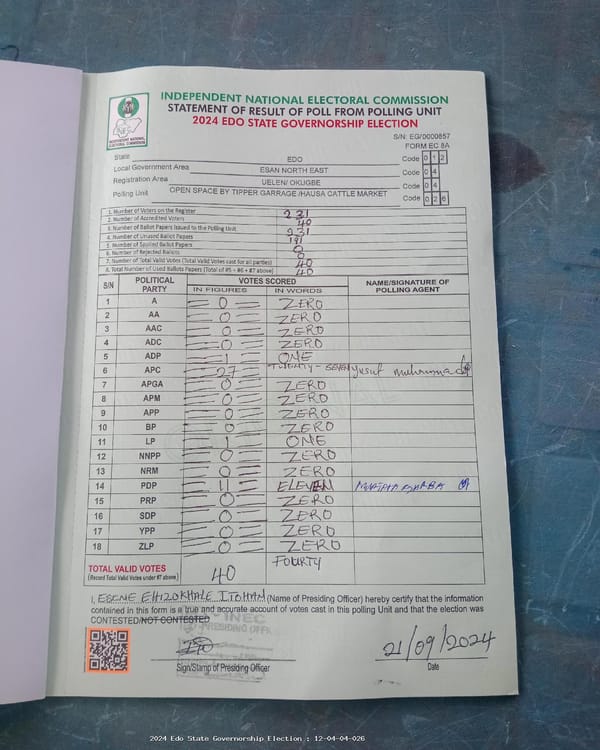 INDEPENDENT NATIONAL ELECTORAL COMMISSION
STATEMENT OF RESULT OF POLL FROM POLLING UNIT
2024 EDO STATE GOVERNORSHIP ELECTION
S/N: EG/0000857
FORM EC 8A
State EDO Code 1 2
Local Government Area ESAN NORTH EAST Code 0 4
Registration Area UELEN/ OKUGBE Code 0 4
Polling Unit OPEN SPACE BY TIPPER GARRAGE /HAUSA CATTLE MARKET Code 0 2 6
1. Number of Voters on the Register 231
2. Number of Accredited Voters 40
3. Number of Ballot Papers Issued to the Polling Unit 231
4. Number of Unused Ballot Papers 191
5. Number of Spoiled Ballot Papers 0
6. Number of Rejected Ballots 0
7. Number of Total Valid Votes (Total Valid Votes cast for all parties) 40
8. Total Number of Used Ballots Papers (Total of #5 + #6 + #7 above) 40
S/N POLITICAL PARTY VOTES SCORED NAME/SIGNATURE OF POLLING AGENT
IN FIGURES IN WORDS
1 A 0 ZERO
2 AA 0 ZERO
3 AAC 0 ZERO
4 ADC 0 ZERO
5 ADP 1 ONE
6 APC 27 TWENTY-SEVEN Yusuf
7 APGA 0 ZERO
8 APM 0 ZERO
9 APP 0 ZERO
10 BP 0 ZERO
11 LP 1 ONE
12 NNPP 0 ZERO
13 NRM 0 ZERO
14 PDP 11 ELEVEN
15 PRP 0 ZERO
16 SDP 0 ZERO
17 YPP 0 ZERO
18 ZLP 0 ZERO
TOTAL VALID VOTES 40 FOURTY
(Record Total Valid Votes under #7 above)
I, EBENE EHIZOKHALE ITOHAN (Name of Presiding Officer) hereby certify that the information
contained in this form is a true and accurate account of votes cast in this polling Unit and that the election was
CONTESTED/NOT CONTESTED
INEC
PRESIDING OFFI
21/09/2024
Sign/Stamp of Presiding Officer Date
2024 Edo State Governorship Election : 12-04-04-026